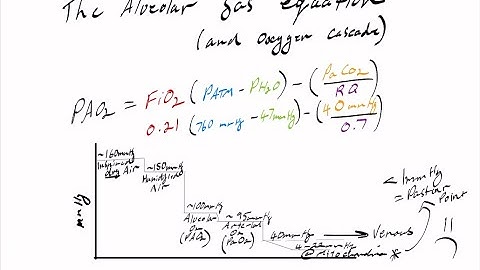 The Alveolar gas equation
(and Oxygen cascade)
PAO₂ = FiO₂ (PATM - PH₂O) - (PaCO₂/RQ)
0.21 (760 mmHg - 47mmHg) - (40mmHg/0.7)
mmHg
~160mmHg
Inspired
dry Air
~150mmHg
Humidified
Air
~100mmHg
Alveolar
O₂
(PAO₂)
~95mmHg
Arterial
O₂
(PaO₂)
40mmHg
Venous
4-22mmHg
@ Mitochondria *
< 1mmHg
= Pasteur
Point